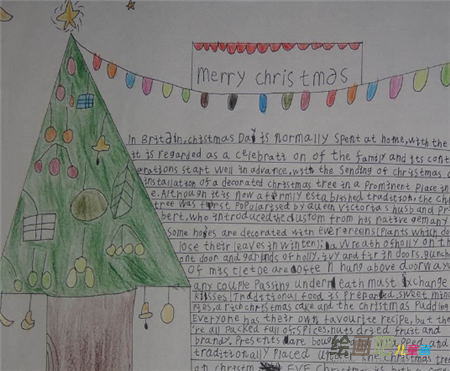 merry christmas
In Britain, christmas Day is normally spent at home, with the
it is regarded as a celebration of the family and its cont
erations start well in advance, with the sending of christmas c
installation of a decorated christmas tree in a Prominent Place in
e. Although it is now a firmly established tradition, the Chr
tree was first Popularised by queen victoria's husband Pr
bert, who introduced the custom from his native Germany
Some homes are decorated with Evergreens (Plants which do
lose their leaves in winter); a wreath of holly on the
ont door and garlands of holly, ivy and fir in doors, Bunch
Of mistletoe are often hung above doorways
any couple Passing underneath must Exchange
kisses! Traditional food is Prepared, sweet min
Pies, a rich christmas cake and the christmas Pudding
Everyone has their own favourite recipe, but the
're all Packed full of spices, nuts, dried fruit and
brandy. Presents are
traditionally placed under the christmas tree
on christm EVE Christmas is
绘画 儿童